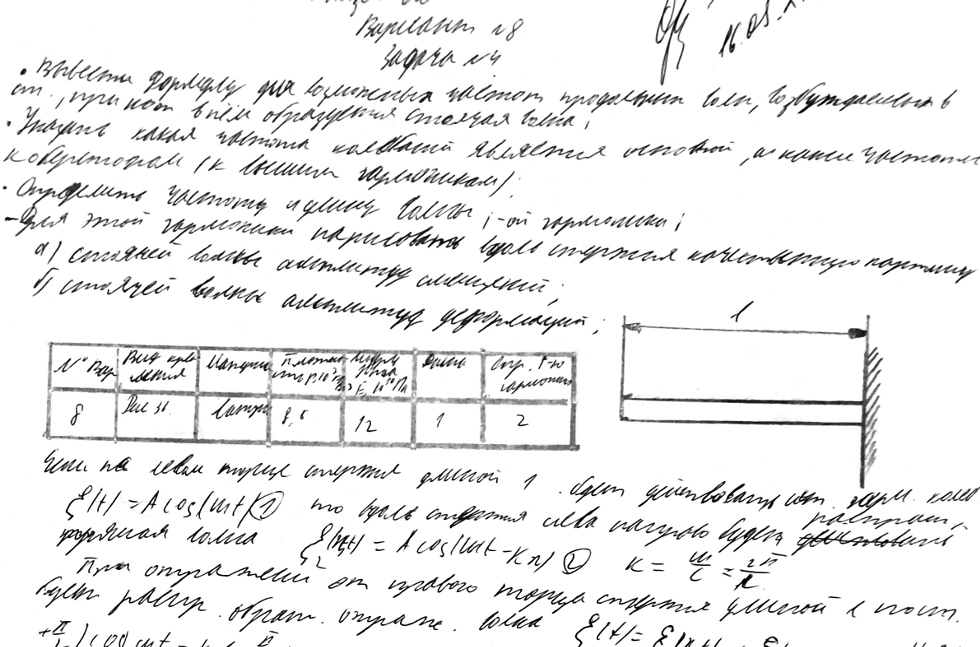 Вариант №8
Задача №4
16.05.
• Вывести формулу для возможных частот продольных волн, возбуждаемых в
ст., при кот в нём образуется стоячая волна;
• Указать какая частота колебаний является основной, а какие частоты
к обертонам (к высшим гармоникам);
• Определить частоту и длину волны i-ой гармоники;
- Для этой гармоники нарисовать вдоль стержня качественную картину
а) стоячей волны амплитуд смещений;
б) стоячей волны амплитуд деформаций;
l
N° Вар Вид креп ления Плотность ρ, 10³ Юнга E, 10¹⁰ Па Длина Опр. i-ю гармонику
8 Рис 31. 8,5 12 1 2
Если на левом торце стержня длиной l будет действовать гарм. колеб
ξ(t) = A cos(ωt) ① то вдоль стержня слева направо будет распростр.
волна = A cos(ωt - kx) ② k = ω/c = 2π/λ
При отражении от правого торца стержня длиной l
будет распр. обратн. отраж. волна